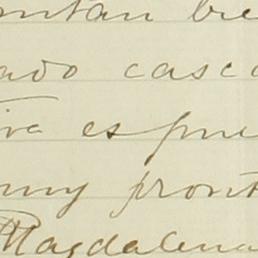 ntan bre
ado casca
iva espue
muy pront
Magdalena